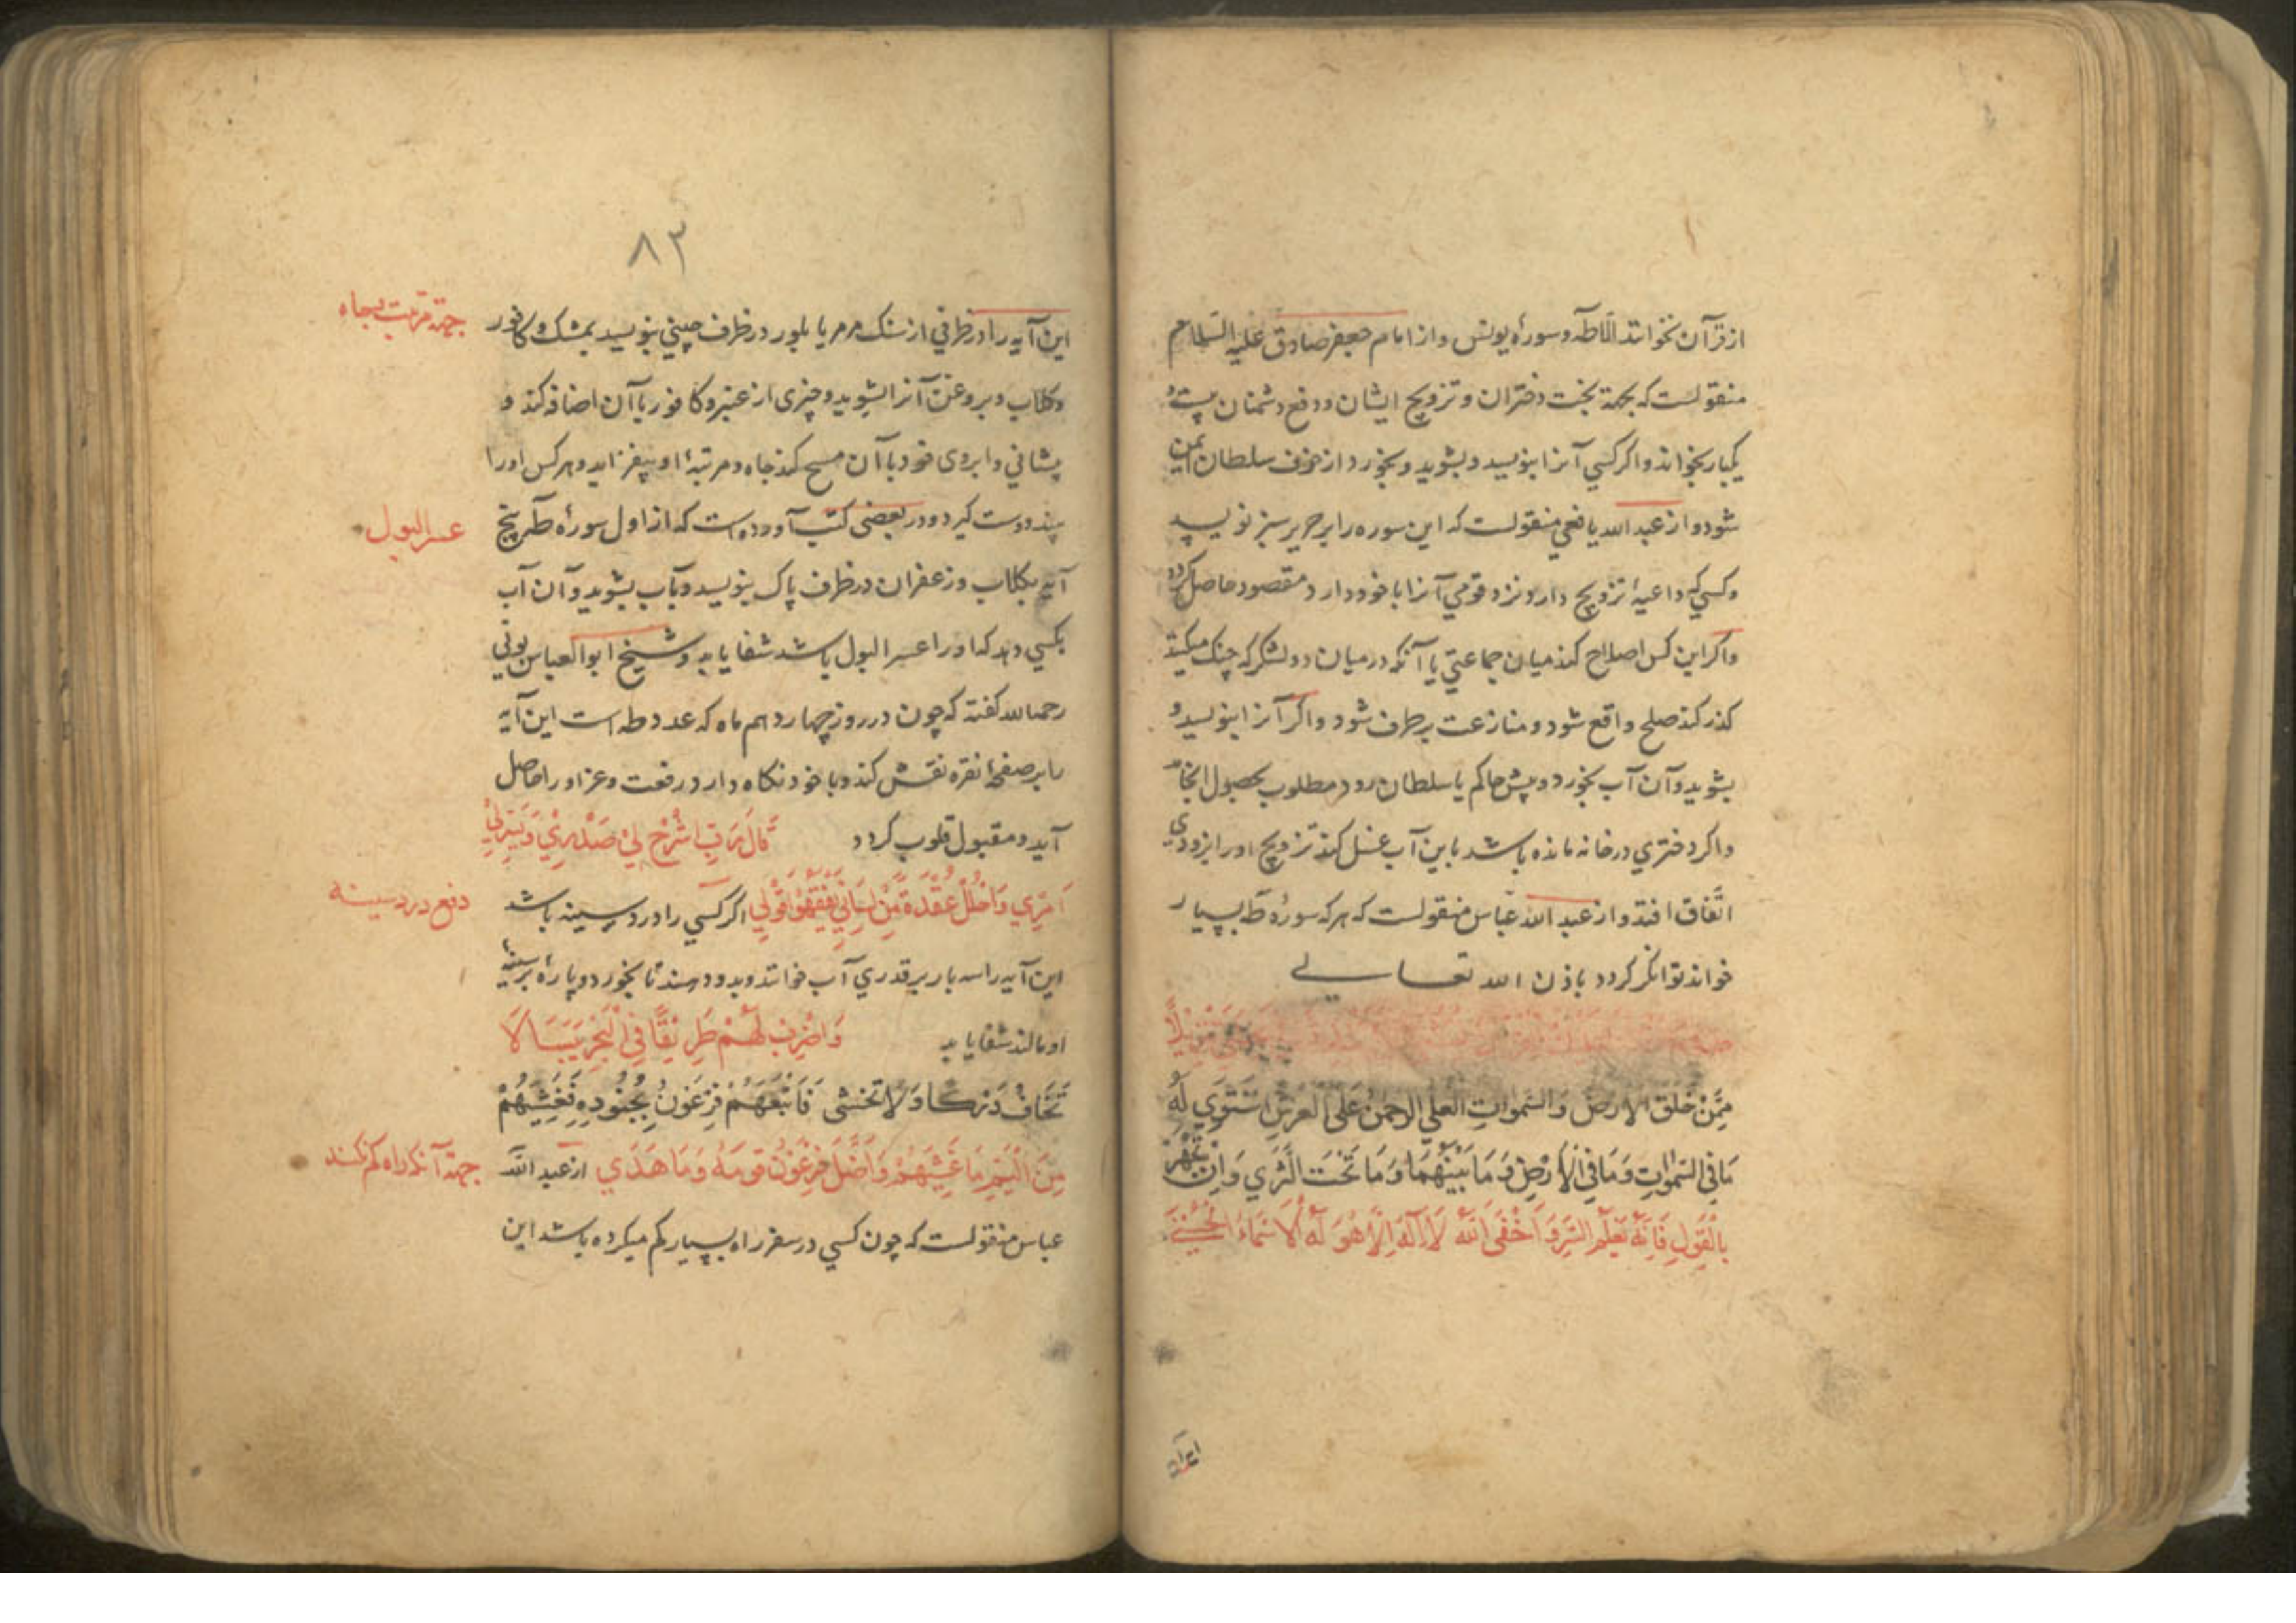 از قرآن نخوانند الا طه و سوره یونس و از امام جعفر صادق علیه السلام
منقولست که بجهة بخت دختران و تزویج ایشان و دفع دشمنان
یکبار بخواند و اگر کسی آنرا بنویسد و بشوید و بخورد از خوف سلطان ایمن
شود و از عبد الله یافعی منقولست که این سوره را بر حریر سبز نویسد
و کسی که داعیهٔ تزویج دارد نزد قومی آنرا با خود دارد مقصود حاصل گردد
و اگر این کس اصلاح کند میان جماعتی یا آنکه در میان دو لشکر که جنگ میکنند
گذر کند صلح واقع شود و منازعت برطرف شود و اگر آنرا بنویسد و
بشوید و آن آب بخورد و پیش حاکم یا سلطان رود مطلوب بحصول انجامد
و اگر دختری در خانه مانده باشد باین آب غسل کند تزویج او را بزودی
اتّفاق افتد و از عبد الله عباس منقولست که هر که سورهٔ طه بسیار
خواند توانگر گردد باذن الله تعالی
تَنْزِیلًا
مِمَّنْ خَلَقَ الْاَرْضَ وَالسَّمٰوَاتِ الْعُلٰی الرَّحْمٰنُ عَلَی الْعَرْشِ اسْتَوٰی لَهُ
مَا فِی السَّمٰوَاتِ وَمَا فِی الْاَرْضِ وَمَا بَیْنَهُمَا وَمَا تَحْتَ الثَّرٰی وَاِنْ تَجْهَرْ
بِالْقَوْلِ فَاِنَّهُ یَعْلَمُ السِّرَّ وَاَخْفٰی اَللّٰهُ لَا اِلٰهَ اِلَّا هُوَ لَهُ الْاَسْمَاءُ الْحُسْنٰی
۸۳
این آیه را در ظرفی از سنک مرمر یا بلور در ظرف چینی بنویسد بمشک و کافور
و گلاب و بروغن آنرا بشوید و چیزی از عنبر و کافور با آن اضافه کند و
پیشانی و ابروی خود با آن مسح کند جاه و مرتبهٔ او بیفزاید و هر کس او را
بیند دوست گیرد و در بعضی کتب آورده است که از اول سورهٔ طه پنج
آیه بگلاب و زعفران در ظرف پاک بنویسد و بآب بشوید و آن آب
بکسی دهد که او را عسر البول باشد شفا یابد و شیخ ابو العباس بونی
رحمه الله گفته که چون در روز چهاردهم ماه که عدد طه است این آیه
را بر صفحهٔ نقره نقش کند و با خود نگاه دارد رفعت و عز او را حاصل
آید و مقبول قلوب گردد قَالَ رَبِّ اشْرَحْ لِی صَدْرِی وَیَسِّرْ لِی
اَمْرِی وَاحْلُلْ عُقْدَةً مِنْ لِسَانِی یَفْقَهُوا قَوْلِی اگر کسی را درد سینه باشد
این آیه را سه بار بر قدری آب خوانند و بدو دهند تا بخورد و پاره بر سینهٔ
او مالند شفا یابد وَاضْرِبْ لَهُمْ طَرِیقًا فِی الْبَحْرِ یَبَسًا لَا
تَخَافُ دَرَكًا وَلَا تَخْشٰی فَاَتْبَعَهُمْ فِرْعَوْنُ بِجُنُودِهِ فَغَشِیَهُمْ
مِنَ الْیَمِّ مَا غَشِیَهُمْ وَاَضَلَّ فِرْعَوْنُ قَوْمَهُ وَمَا هَدٰی از عبد الله
عباس منقولست که چون کسی در سفر راه بسیار گم میکرده باشد این
عسر البول
دفع درد سینه
جهة آنکه راه گم نکند